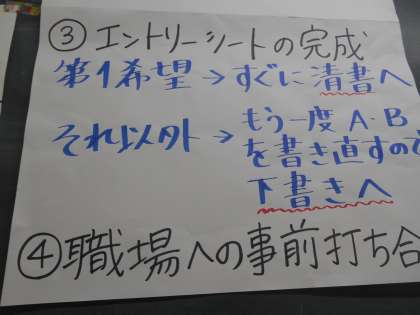 ③エントリーシートの完成
第1希望→すぐに清書へ
それ以外→もう一度A・B
を書き直すので
下書きへ
④職場への事前打ち合